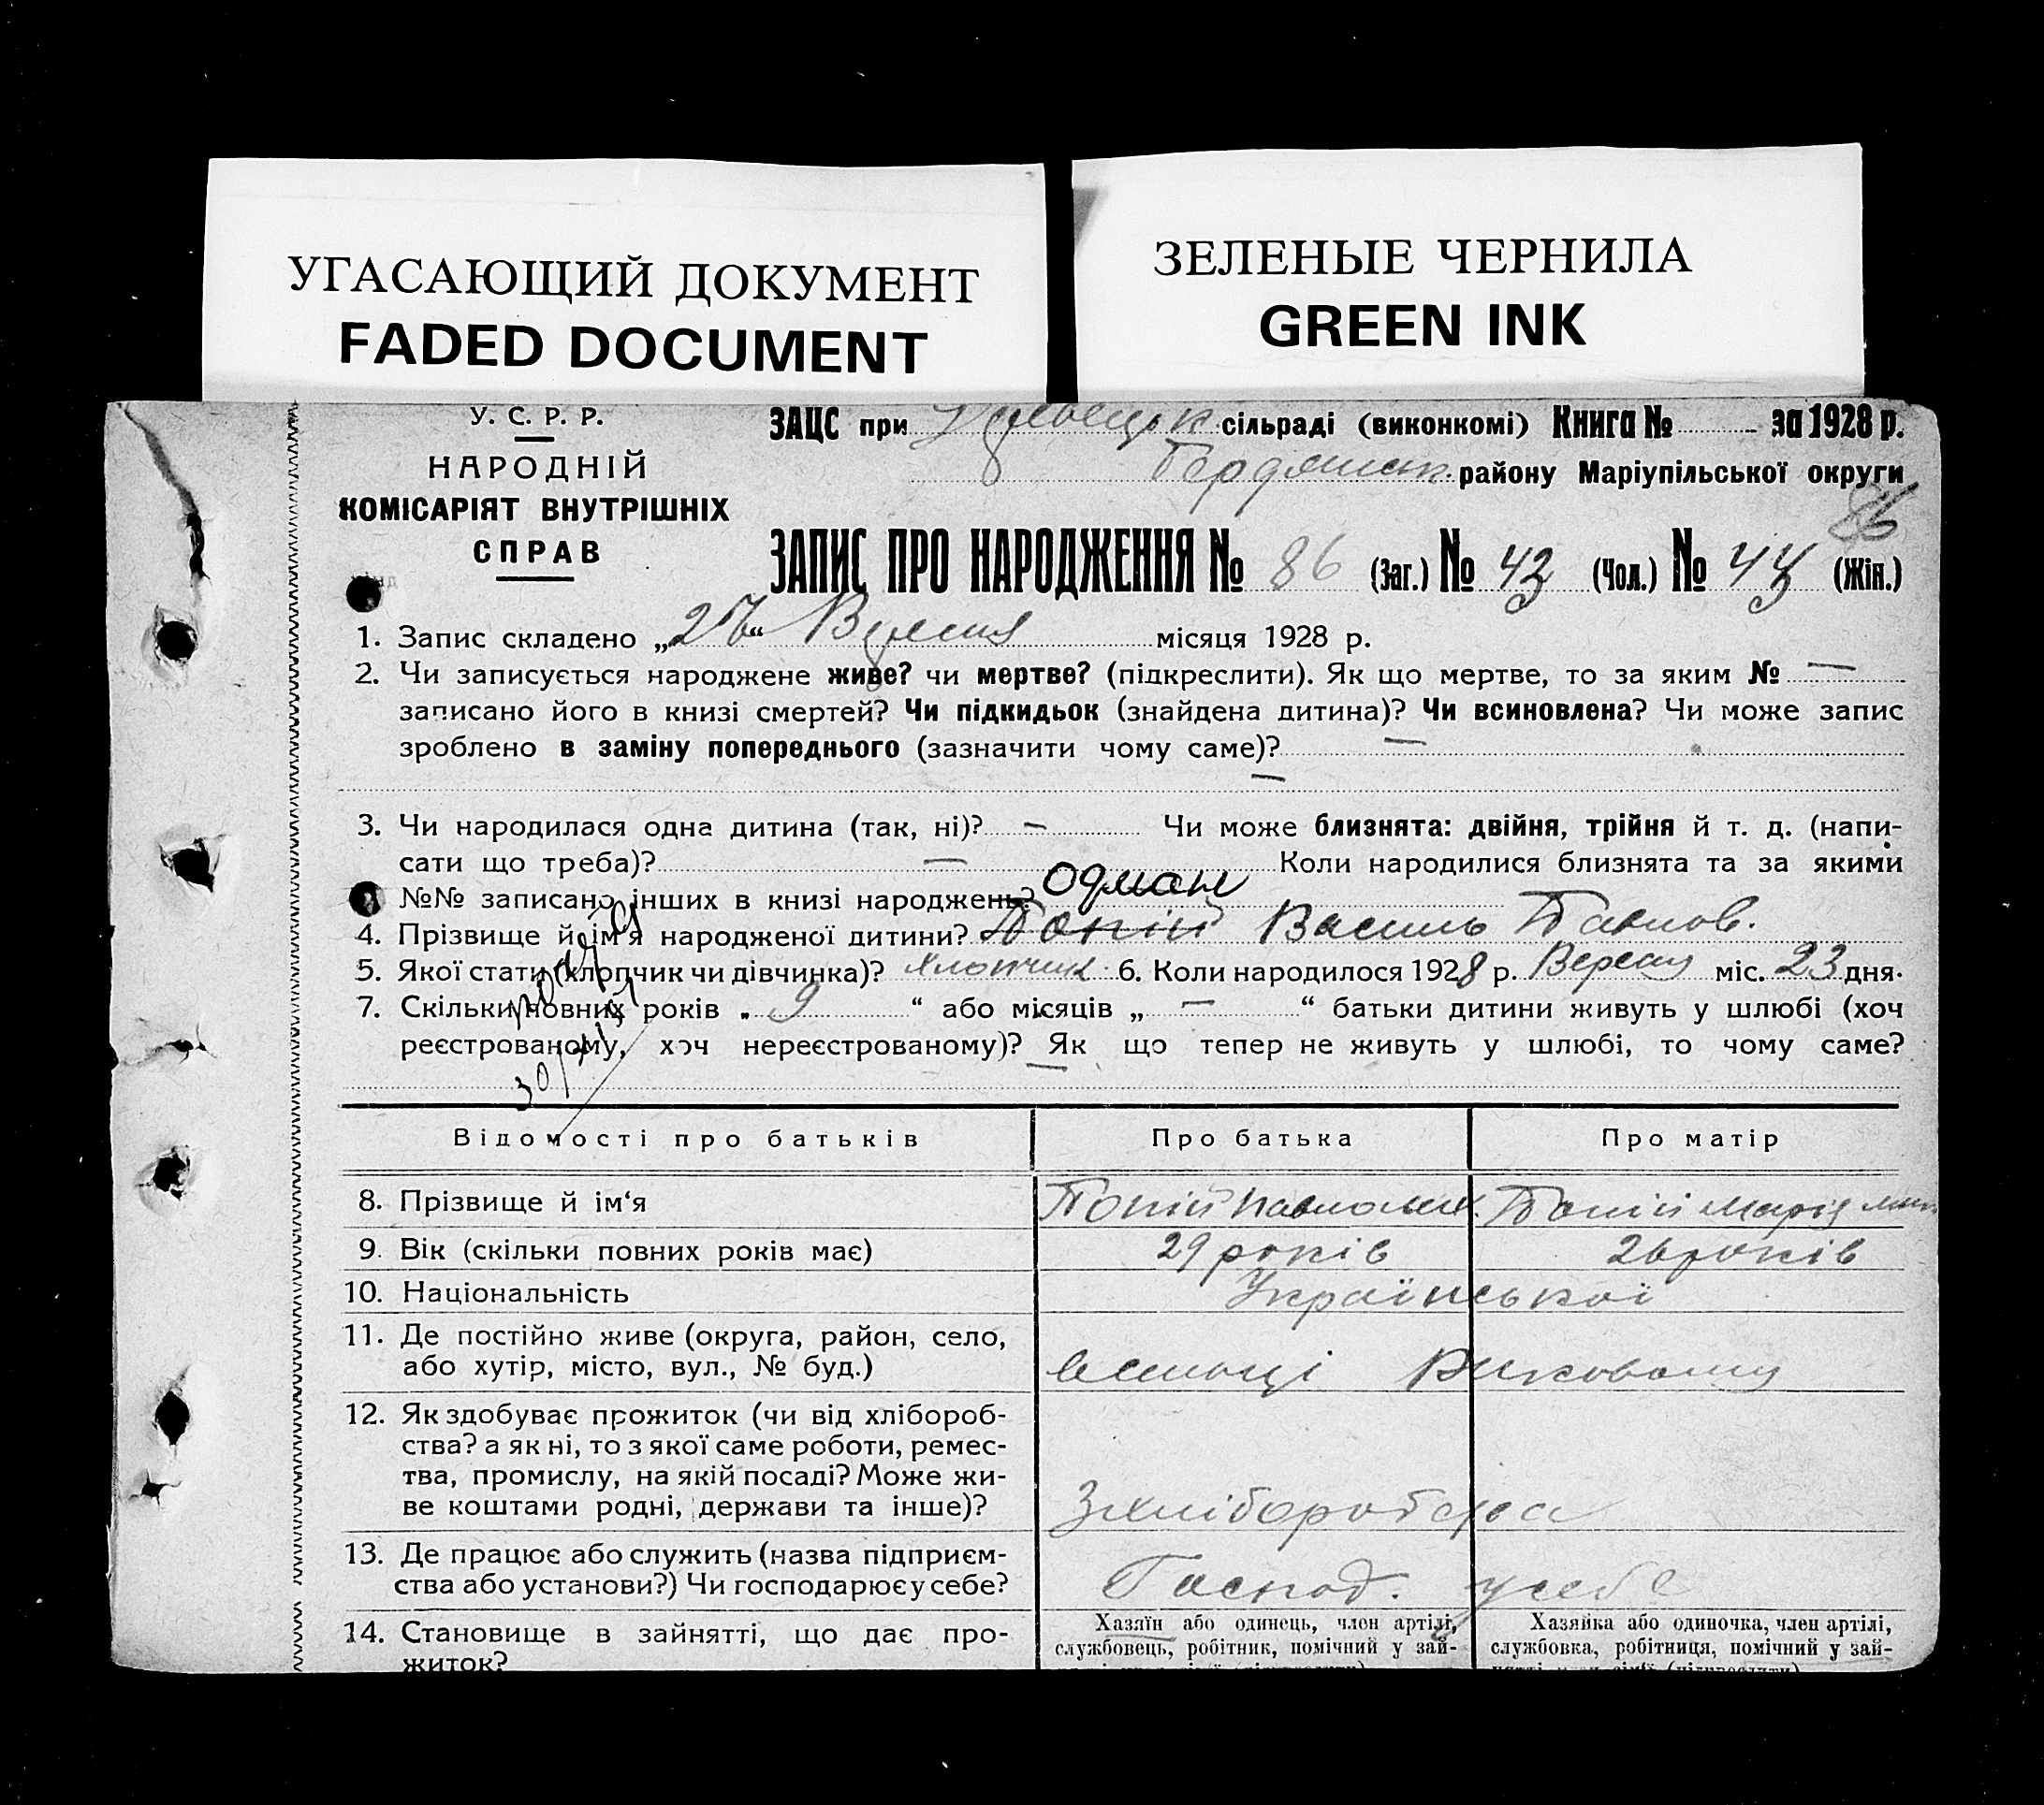 УГАСАЮЩИЙ ДОКУМЕНТ
FADED DOCUMENT
ЗЕЛЕНЫЕ ЧЕРНИЛА
GREEN INK
У. С. Р. Р.
НАРОДНІЙ
КОМІСАРІЯТ ВНУТРІШНІХ
СПРАВ
ЗАЦС при сільраді (виконкомі) Книга № за 1928 р.
Бердянськ. району Маріупільської округи
86
ЗАПИС ПРО НАРОДЖЕННЯ № 86 (Заг.) № 43 (Чол.) № 43 (Жін.)
1. Запис складено „ “ Вересня місяця 1928 р.
2. Чи записується народжене живе? чи мертве? (підкреслити). Як що мертве, то за яким № —
записано його в книзі смертей? Чи підкидьок (знайдена дитина)? Чи всиновлена? Чи може запис
зроблено в заміну попереднього (зазначити чому саме)? —
—
3. Чи народилася одна дитина (так, ні)? — Чи може близнята: двійня, трійня й т. д. (напи-
сати що треба)? — Коли народилися близнята та за якими
№№ записано інших в книзі народжень?
4. Прізвище й ім'я народженої дитини? Попій Василь Павлов.
5. Якої стати (хлопчик чи дівчинка)? Хлопчик 6. Коли народилось 1928 р. Вересня міс. 23 дня.
7. Скільки повних років „ 9 “ або місяців „ — “ батьки дитини живуть у шлюбі (хоч
реєстрованому, хоч нереєстрованому)? Як що тепер не живуть у шлюбі, то чому саме?
—
Відомості про батьків Про батька Про матір
8. Прізвище й ім‘я Попій Павло Попій Марія
9. Вік (скільки повних років має) 29 років 26 років
10. Національність Української
11. Де постійно живе (округа, район, село,
або хутір, місто, вул., № буд.)
12. Як здобуває прожиток (чи від хлібороб-
ства? а як ні, то з якої саме роботи, ремес-
тва, промислу, на якій посаді? Може жи-
ве коштами родні, держави та інше)? З хліборобства
13. Де працює або служить (назва підприєм-
ства або установи?) Чи господарює у себе? Господ. у себе
14. Становище в зайнятті, що дає про-
житок?
Хазяїн або одинець, член артілі,
службовець, робітник, помічний у зай-
Хазяйка або одиночка, член артілі,
службовка, робітниця, помічний у зай-